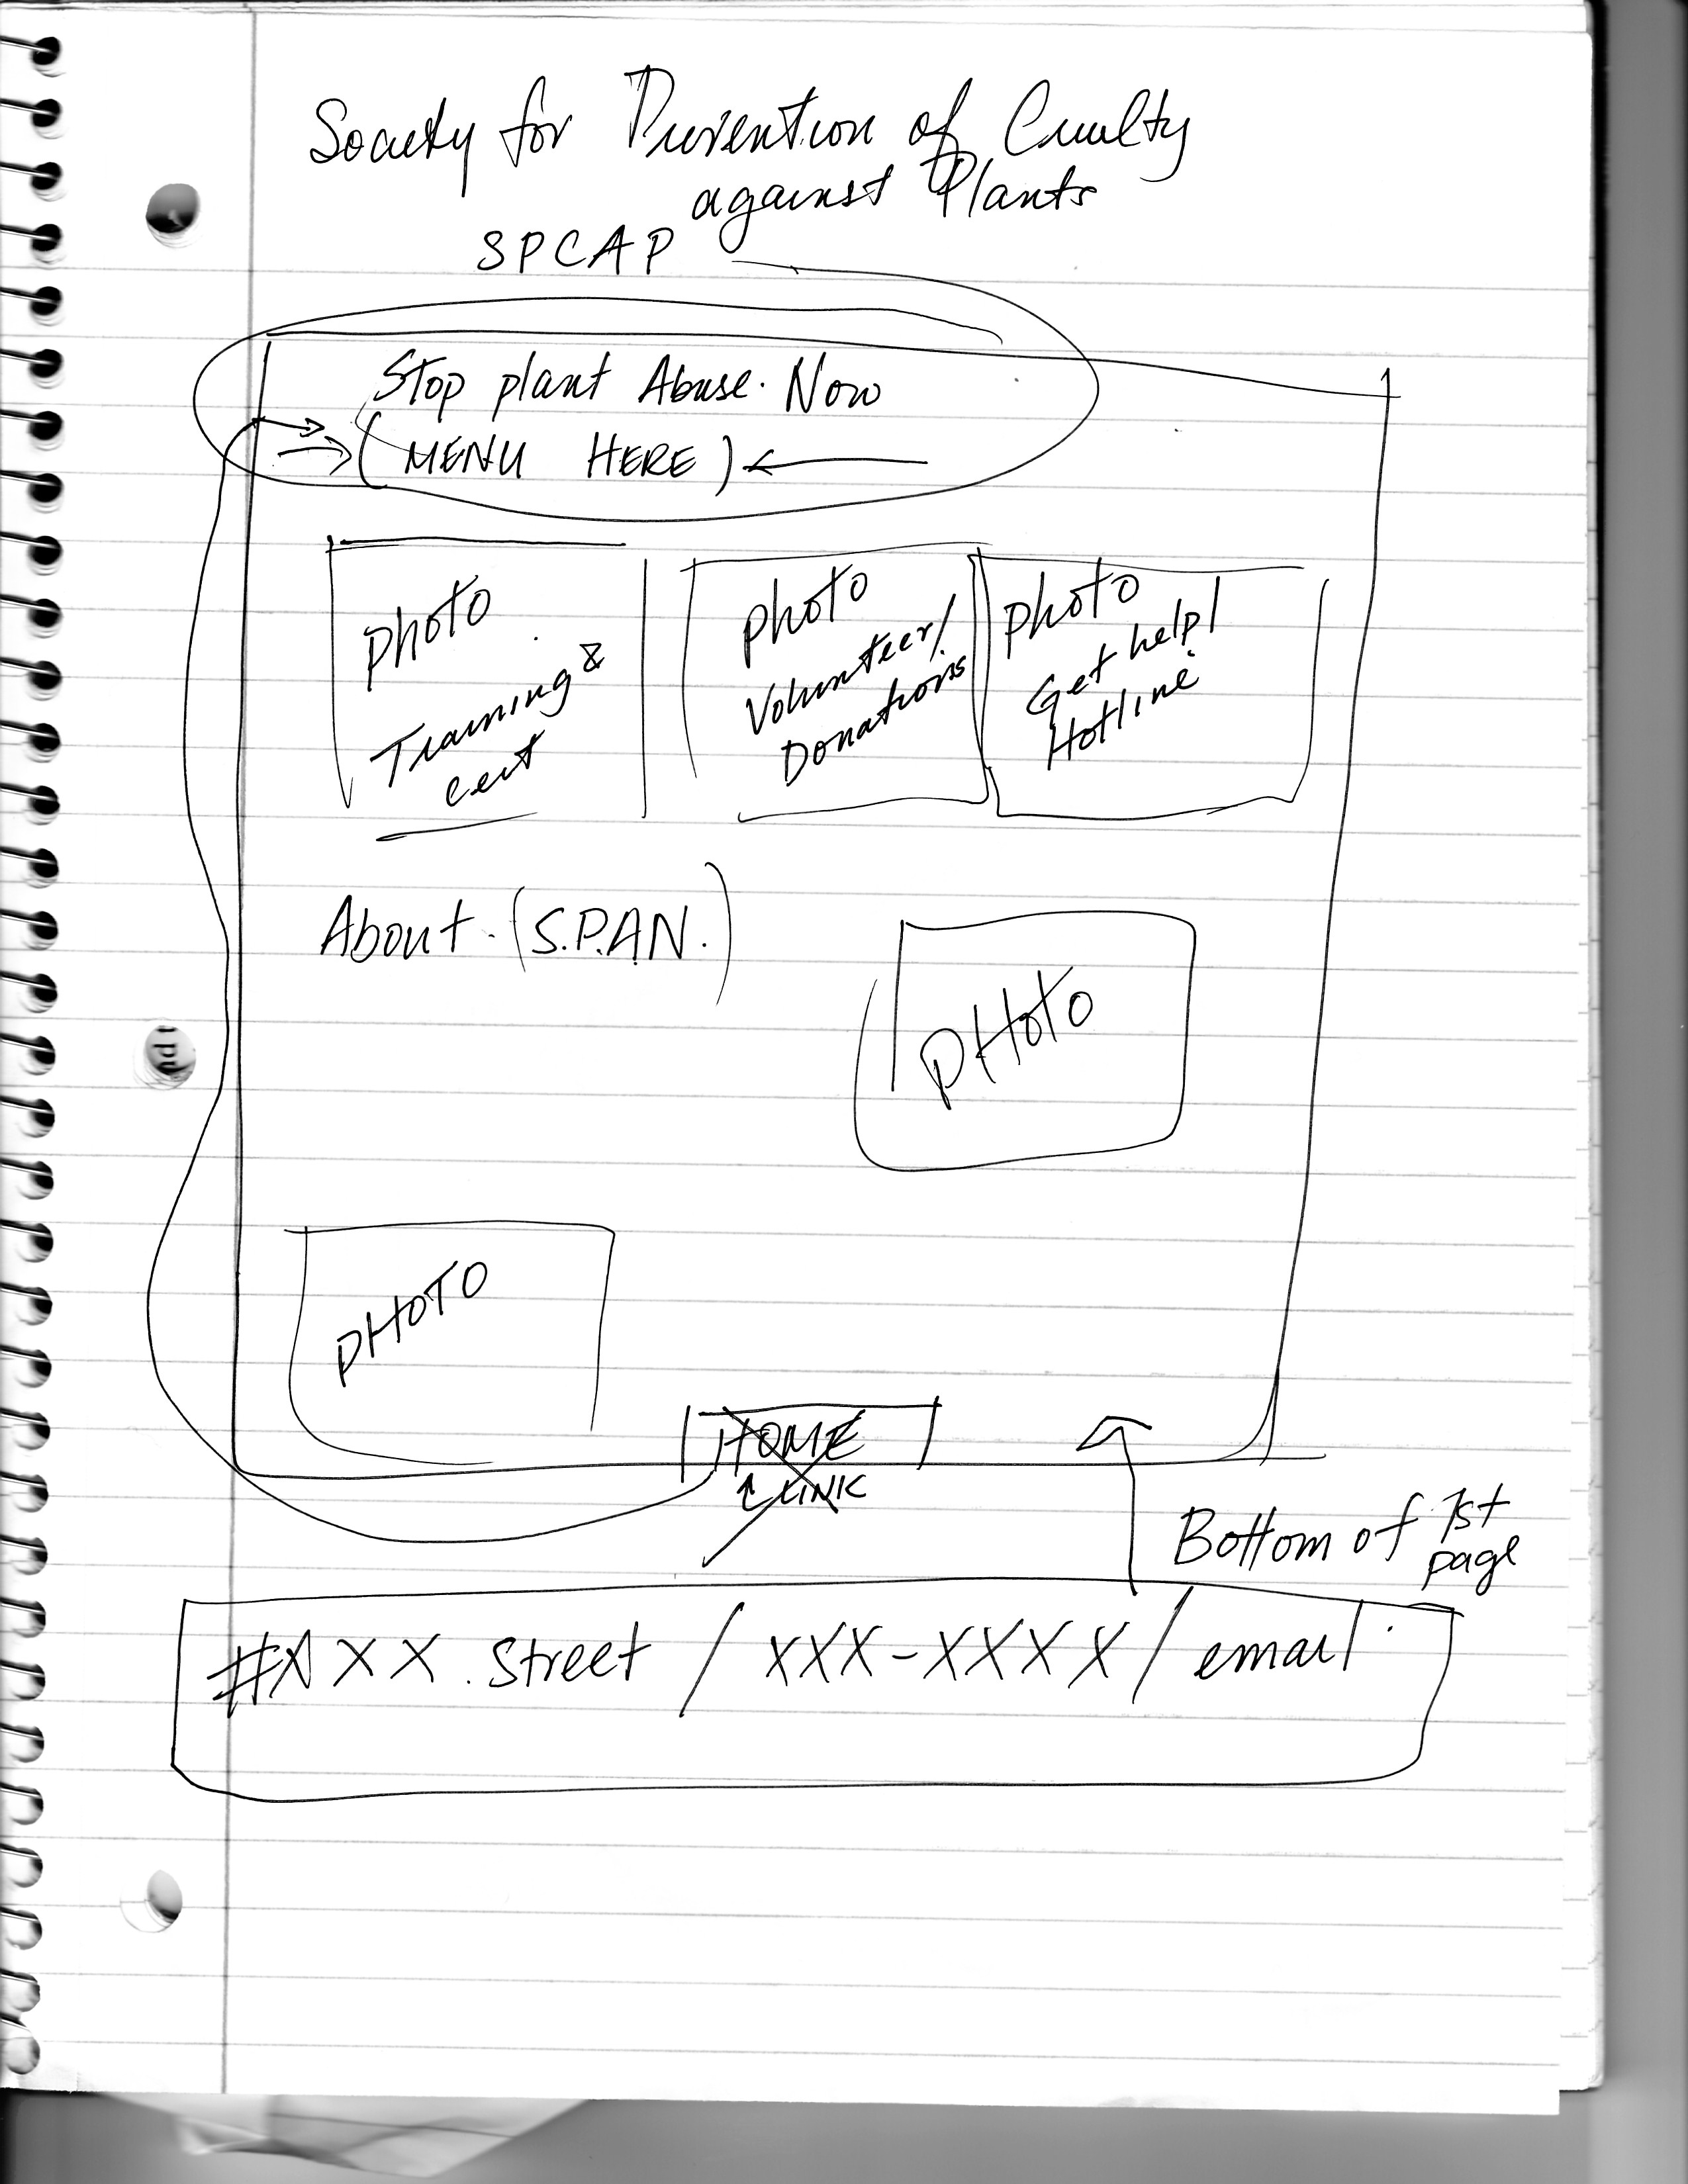 Society for Prevention of Cruelty
against Plants
SPCAP
Stop plant Abuse. Now
(MENU HERE)
photo
Training &
cert
photo
Volunteer/
Donations
photo
Get help/
Hotline
About. (S.P.A.N.)
PHOTO
PHOTO
HOME
LINK
Bottom of 1st
page
#XXX. Street / XXX-XXXX / email.